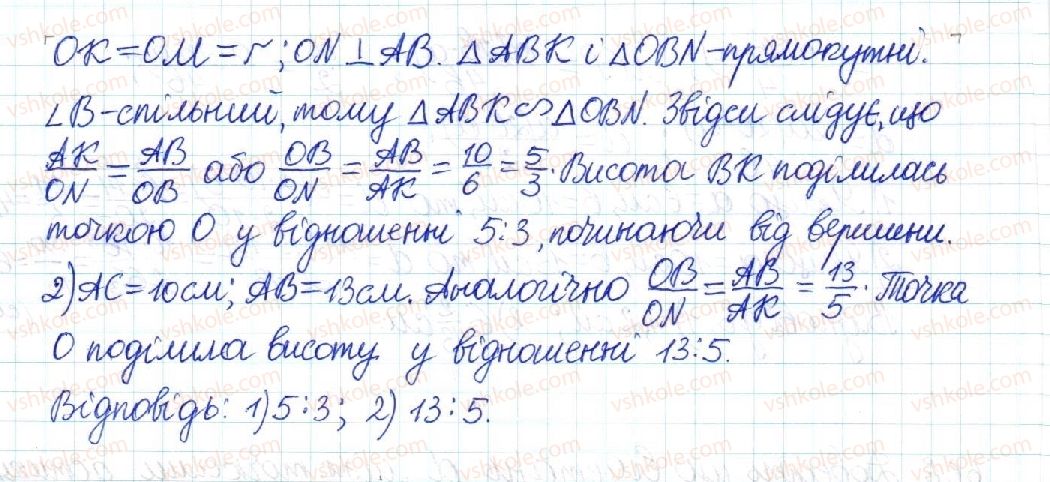 OK=OM=r; ON⊥AB. △ABK і △OBN-прямокутні.
∠B-спільний, тому △ABK∾△OBN. Звідси слідує, що
AK/ON = AB/OB або OB/ON = AB/AK = 10/6 = 5/3. Висота BK поділилась
точкою O у відношенні 5:3, починаючи від вершини.
2) AC=10см; AB=13см. Аналогічно OB/ON = AB/AK = 13/5. Точка
O поділила висоту у відношенні 13:5.
Відповідь: 1) 5:3; 2) 13:5.